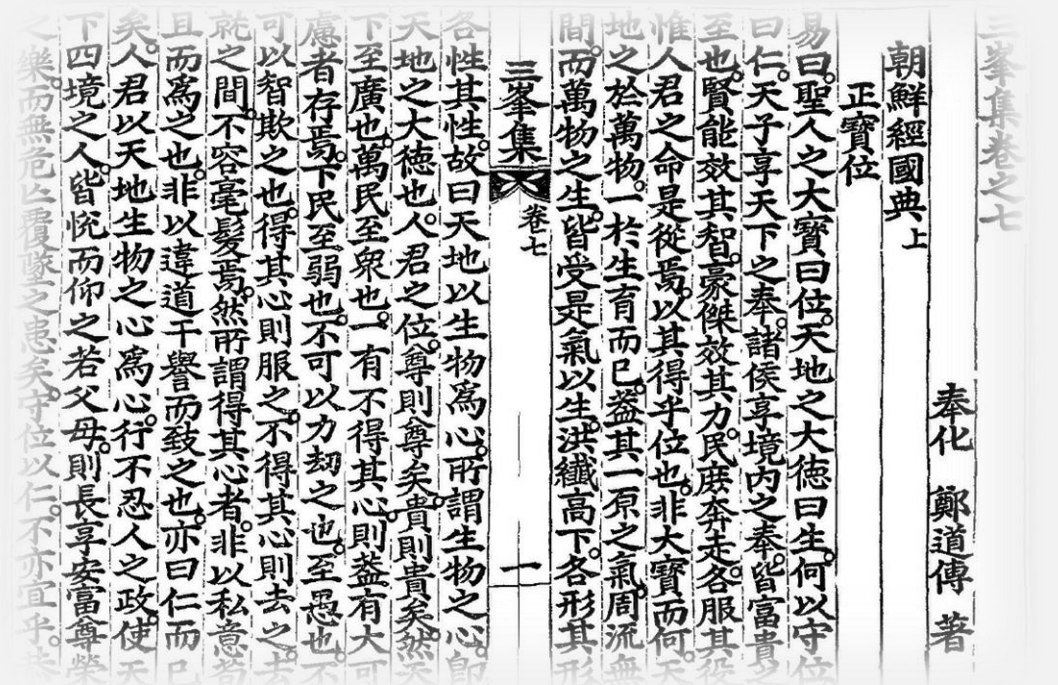 三峯集卷之七
奉化 鄭道傳 著
朝鮮經國典上
正寶位
易曰。聖人之大寶曰位。天地之大德曰生。何以守位
曰仁。天子享天下之奉。諸侯享境內之奉。皆富貴之
至也。賢能效其智。豪傑效其力。民庶奔走。各服其役
惟人君之命是從焉。以其得乎位也。非大寶而何。天
地之於萬物。一於生育而已。盖其一原之氣。周流無
間。而萬物之生。皆受是氣以生。洪纖高下。各形其形
三峯集 卷七 一
各性其性。故曰天地以生物爲心。所謂生物之心。卽
天地之大德也。人君之位。尊則尊矣。貴則貴矣。然天
下至廣也。萬民至衆也。一有不得其心。則盖有大可
慮者存焉。下民至弱也。不可以力劫之也。至愚也。不
可以智欺之也。得其心則服之。不得其心則去之。去
就之間。不容毫髮焉。然所謂得其心者。非以私意苟
且而爲之也。非以違道干譽而致之也。亦曰仁而已
矣。人君以天地生物之心爲心。行不忍人之政。使天
下四境之人。皆悅而仰之若父母。則長享安富尊榮
之樂。而無危亡覆墜之患矣。守位以仁。不亦宜乎。恭